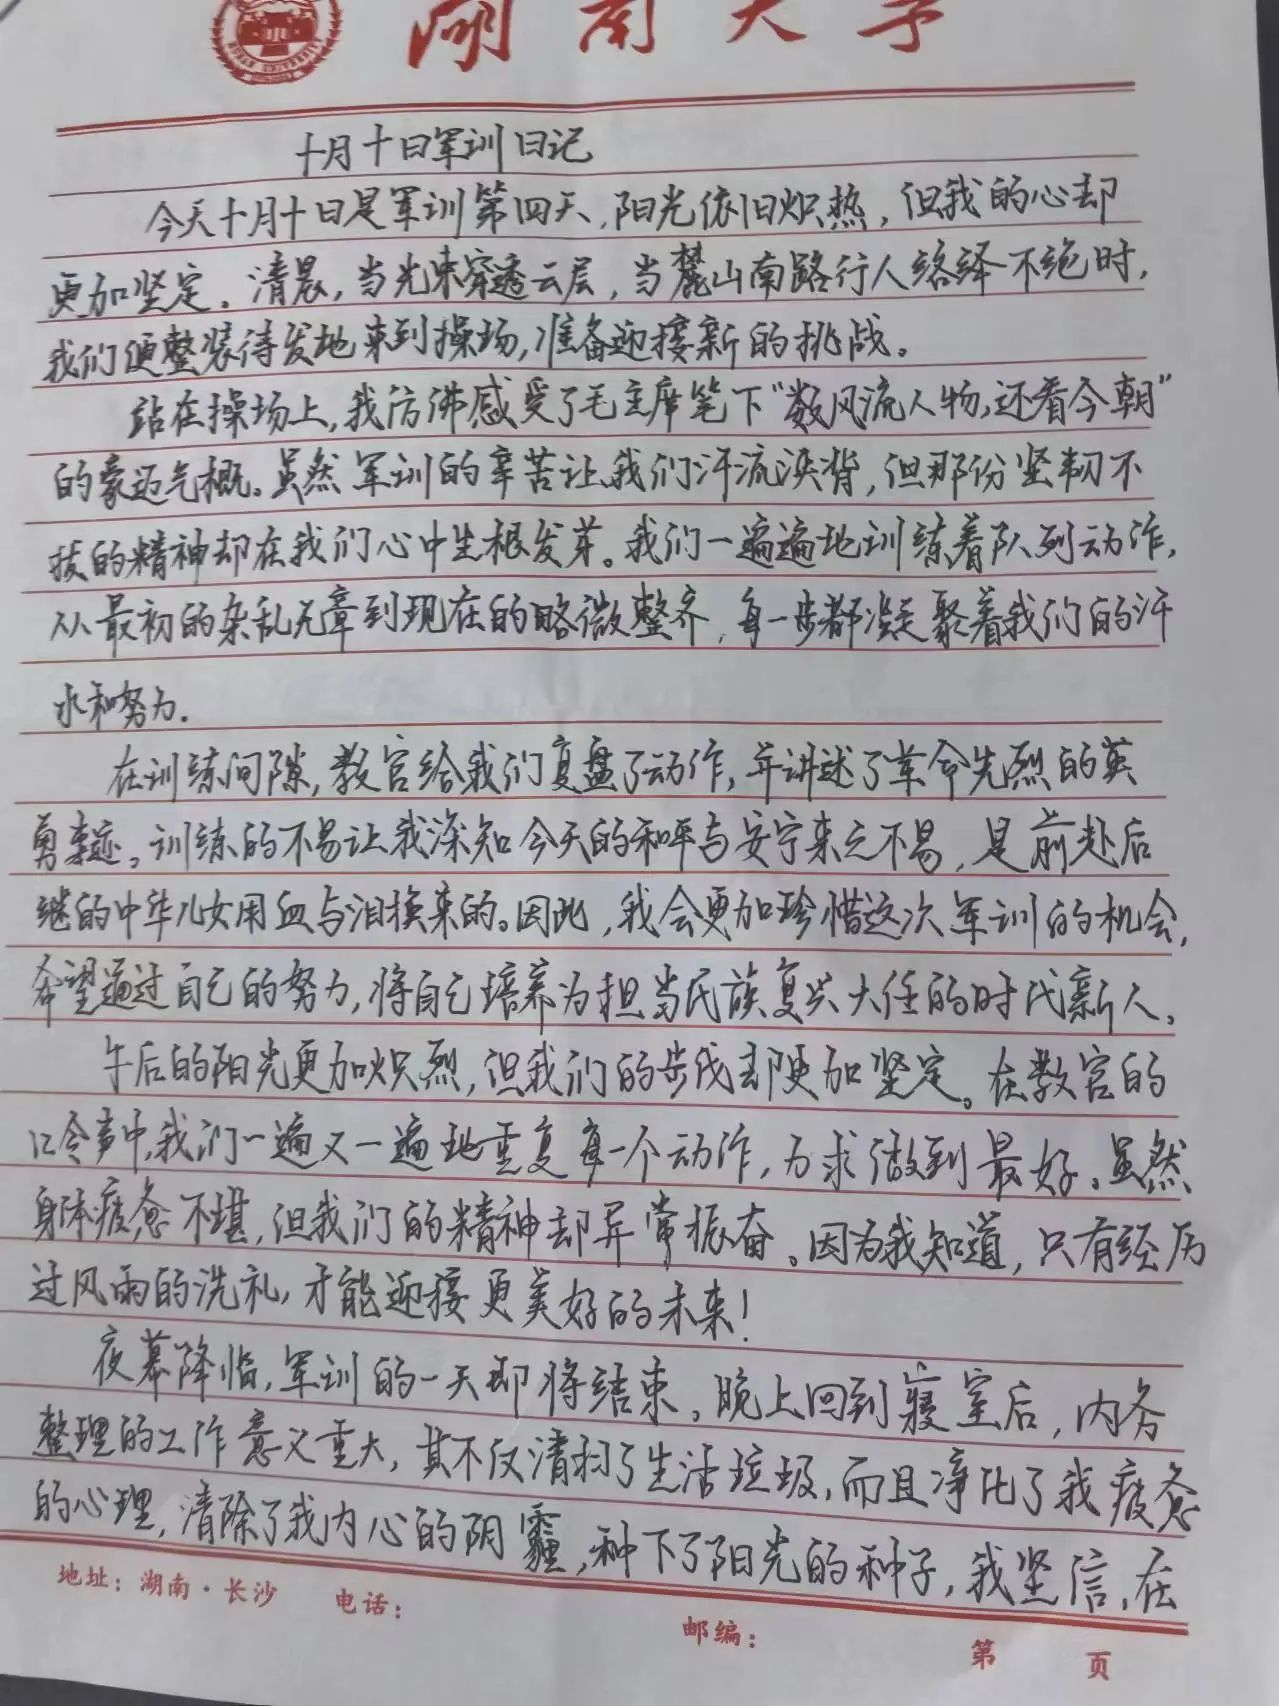 湖南大学
十月十日军训日记
今天十月十日是军训第四天,阳光依旧炽热,但我的心却
更加坚定。清晨,当光束穿透云层,当麓山南路行人络绎不绝时,
我们便整装待发地来到操场,准备迎接新的挑战。
站在操场上,我仿佛感受了毛主席笔下“数风流人物,还看今朝”
的豪迈气概。虽然军训的辛苦让我们汗流浃背,但那份坚韧不
拔的精神却在我们心中生根发芽。我们一遍遍地训练着队列动作,
从最初的杂乱无章到现在的略微整齐,每一步都凝聚着我们的汗
水和努力.
在训练间隙,教官给我们复盘了动作,并讲述了革命先烈的英
勇事迹。训练的不易让我深知今天的和平与安宁来之不易,是前赴后
继的中华儿女用血与泪换来的。因此,我会更加珍惜这次军训的机会,
希望通过自己的努力,将自己培养为担当民族复兴大任的时代新人。
午后的阳光更加炽烈,但我们的步伐却更加坚定。在教官的
口令声中,我们一遍又一遍地重复每一个动作,力求做到最好。虽然
身体疲惫不堪,但我们的精神却异常振奋。因为我知道,只有经历
过风雨的洗礼,才能迎接更美好的未来!
夜幕降临,军训的一天即将结束。晚上回到寝室后,内务
整理的工作意义重大,其不仅清扫了生活垃圾,而且净化了我疲惫
的心理,清除了我内心的阴霾,种下了阳光的种子,我坚信,在
地址:湖南·长沙 电话: 邮编: 第 页